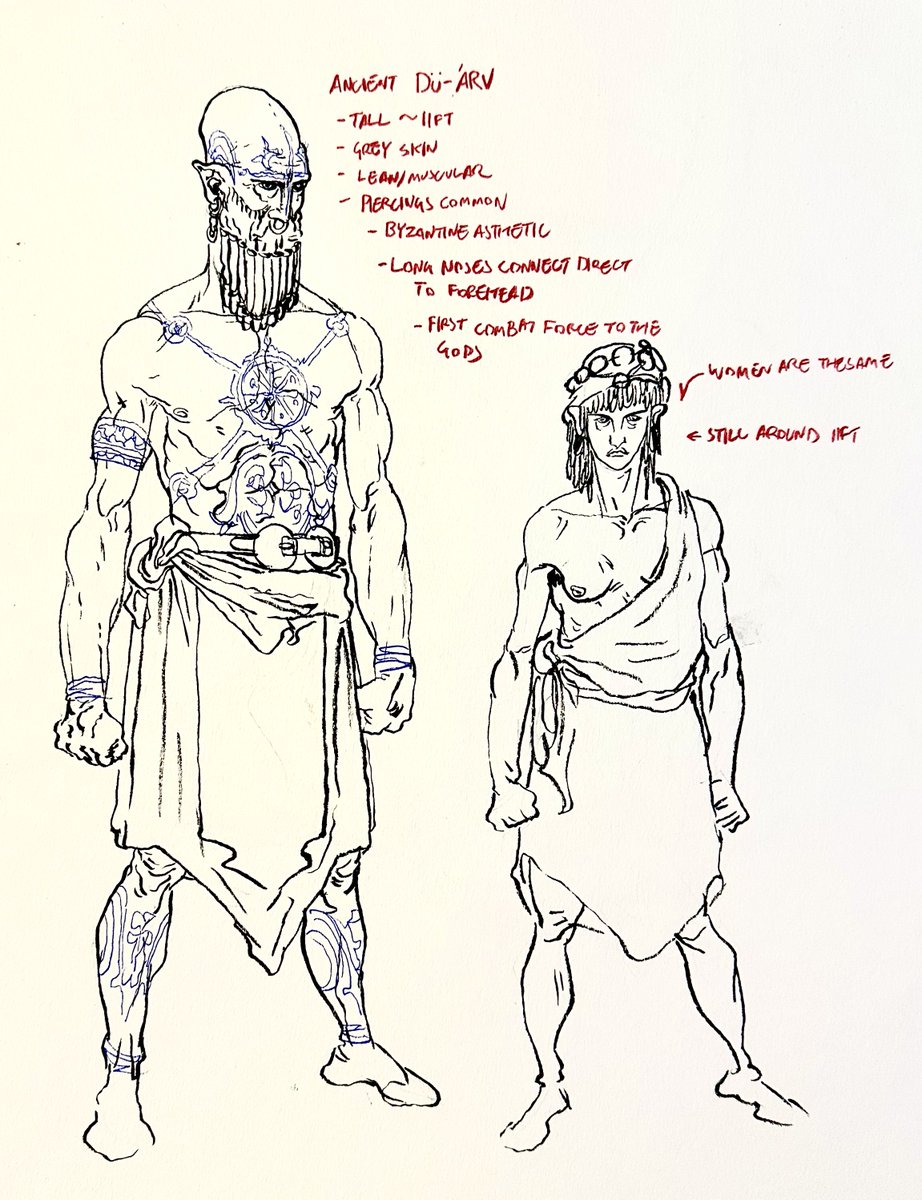 ANCIENT DÜ-'ARV
- TALL ~11FT
- GREY SKIN
- LEAN/MUSCULAR
- PIERCINGS COMMON
- BYZANTINE ASTHETIC
- LONG NOSES CONNECT DIRECT
TO FOREHEAD
- FIRST COMBAT FORCE TO THE
GODS
WOMEN ARE THE SAME
← STILL AROUND 11FT